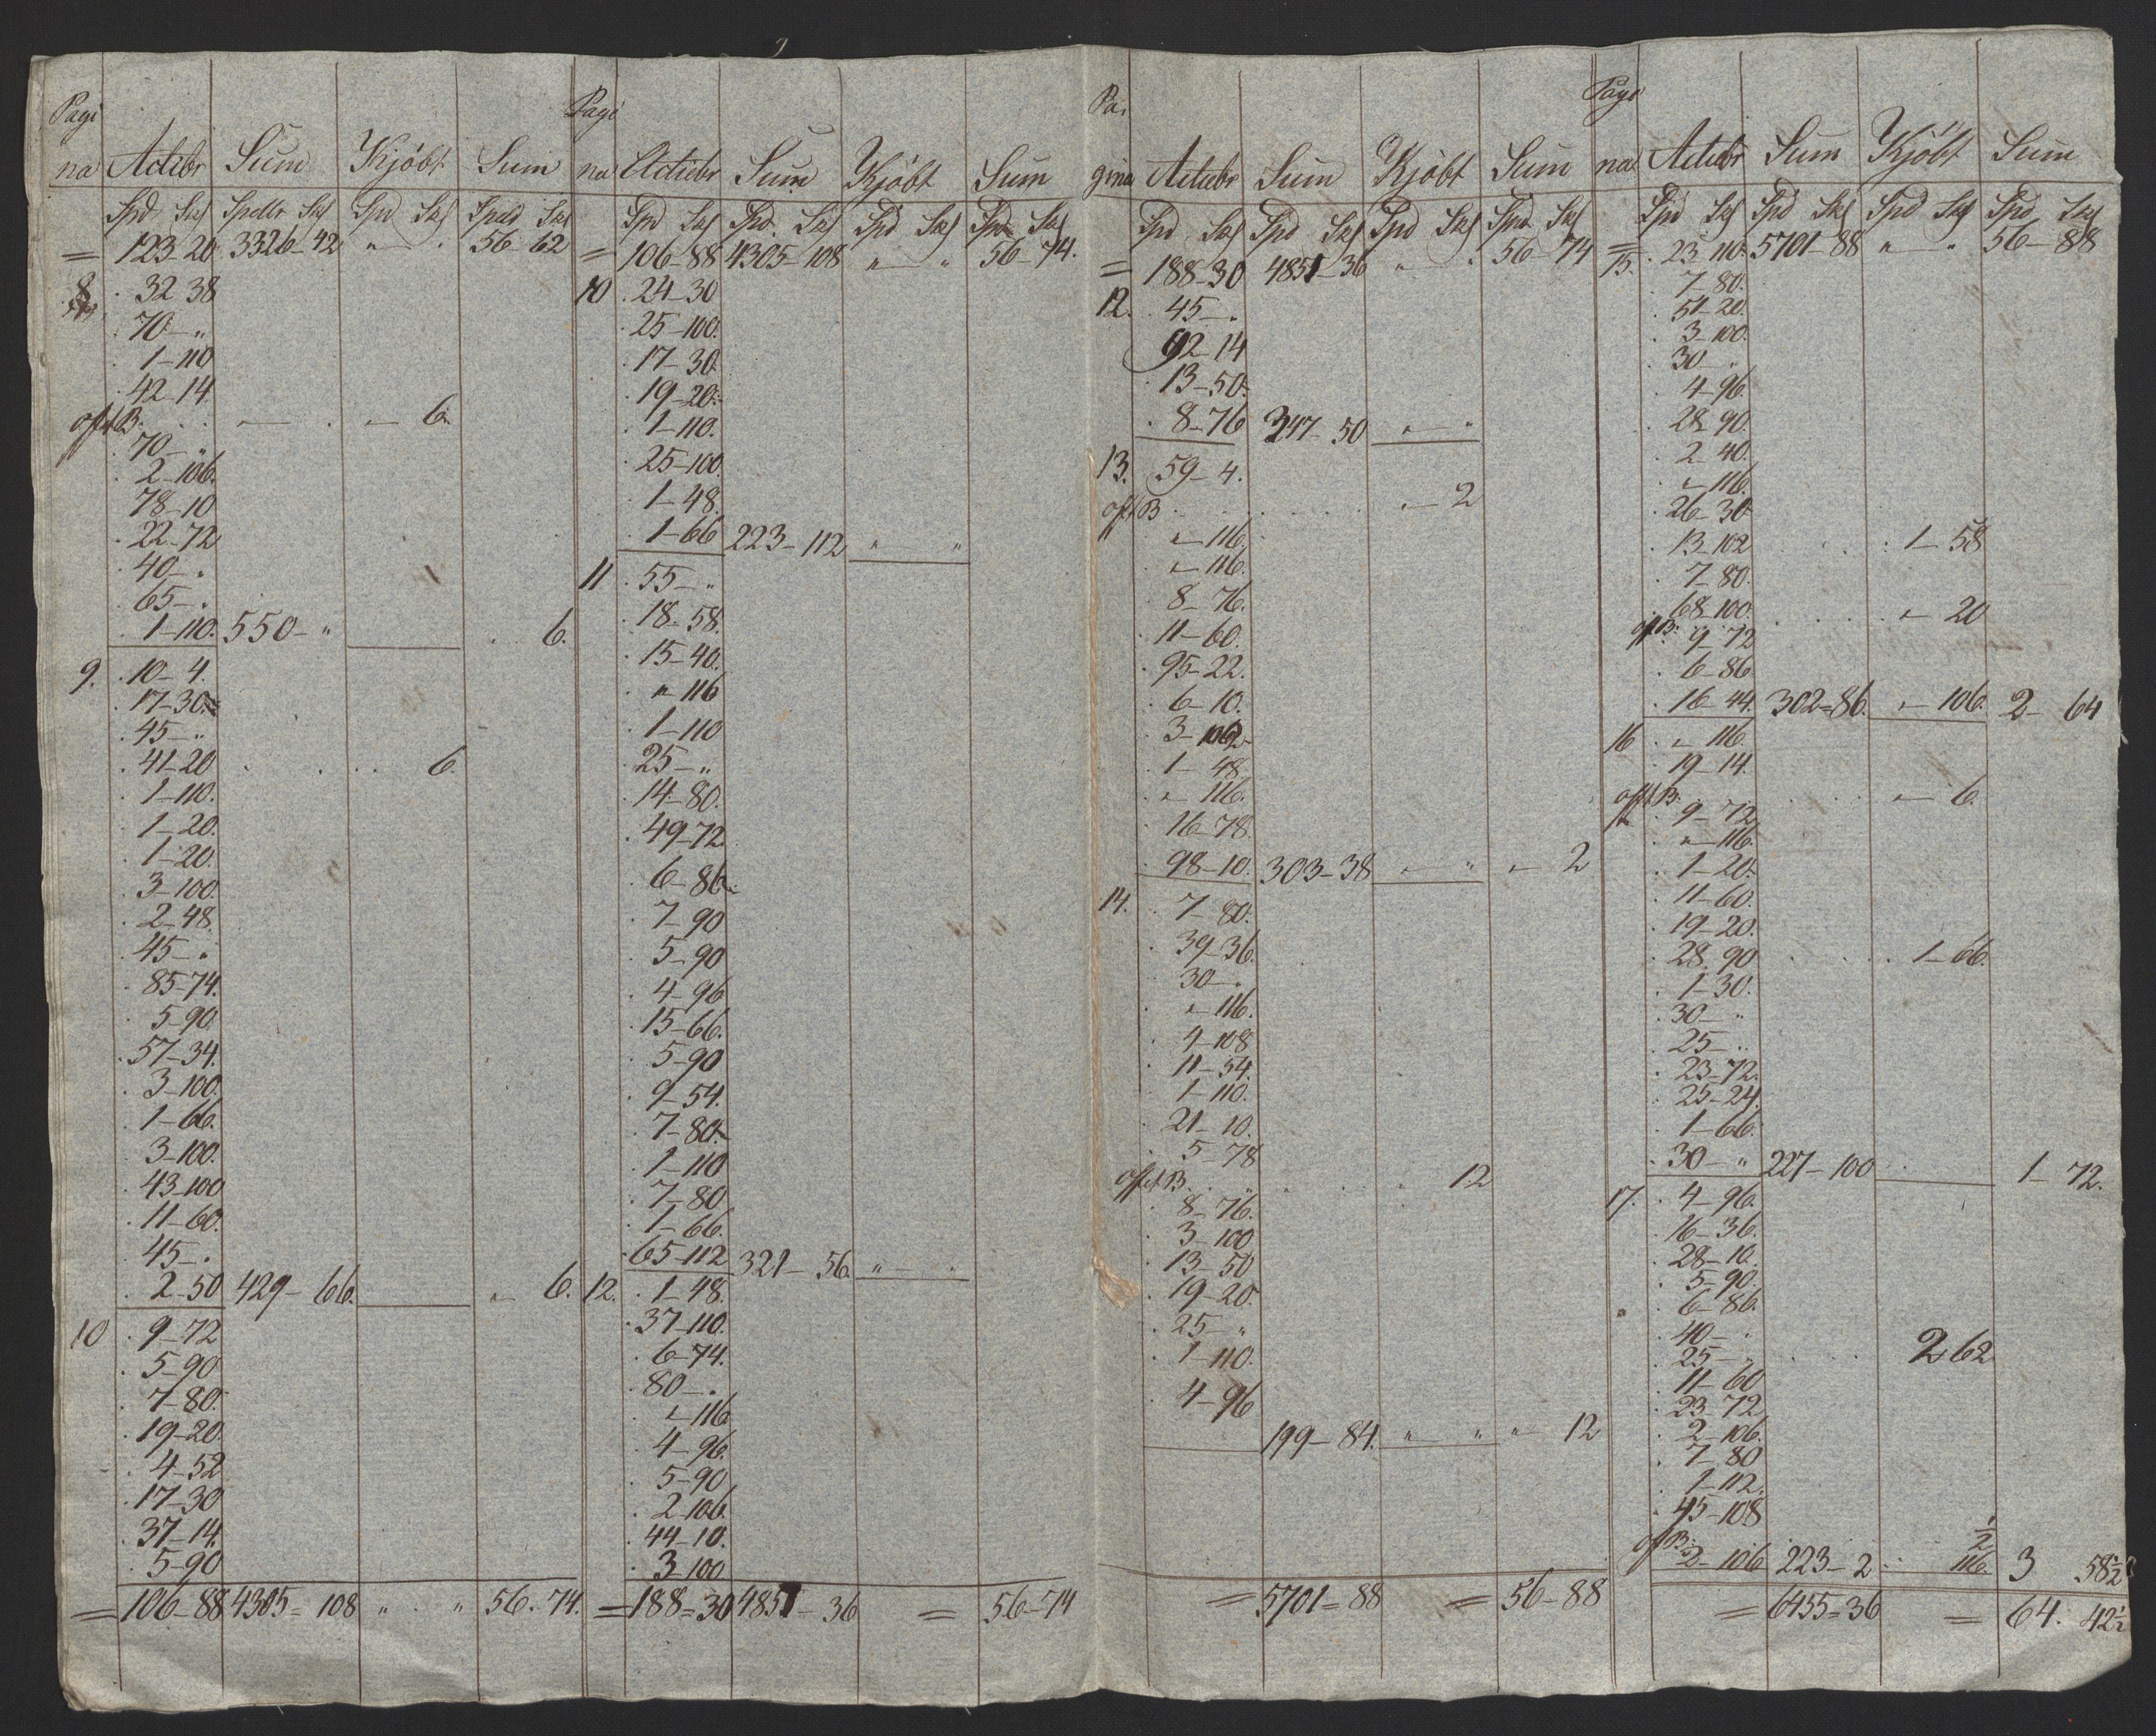 Pagi
na Actiebr Sum Kjöbt Sum
Spd Sks Spdlr Sks Spd Sks Spds Sks
= 123-20 3326-42 " " 56-62
8. 32 38
70-"
1-110
42-14.
oft B. - - 6.
70-"
2-106.
78-10
22-72
40-"
65-"
1-110. 550-" 6.
9. 10-4.
17-30.
45-"
41-20 6.
1-110.
1-20.
1-20.
3-100.
2-48.
45-"
85-74.
5-90.
57-34.
3-100.
1-66.
3-100.
43-100
11-60.
45-"
2-50 429-66. " 6.
10 9-72
5-90
7-80.
19-20
4-52
17-30
37-14.
5-90
= 106-88 4305=108 " " 56-74.
Pagi
na Actiebr Sum Kjöbt Sum
Spd Sks Spd. Sks Spd Sks Spd Sks
= 106-88 4305-108 " " 56-74.
10 24-30
25-100.
17-30.
19-20.
1-110.
25-100.
1-48.
1-66 223-112 " "
11 55-"
18-58.
15-40.
"-116
1-110
25-"
14-80.
49-72
6-86
7-90
5-90
4-96
15-66.
5-90
9-54.
7-80.
1-110
7-80
1-66.
65-112 321-56. " "
12. 1-48.
37-110.
6-74.
80-"
"-116
4-96.
5-90
2-106.
44-10.
3 100
= 188=30 4851-36 = 56-74
Pa,
gina Actiebr Sum Kjöbt Sum
Spd Sks Spd Sks Spd Sks Spd Sks
= 188-30 4851-36 " " 56-74
12. 45-"
92-14
13-50.
8-76 347-50 " "
13. 59-4.
oft B "-2
"-116.
"-116.
8-76.
11-60.
95-22.
6-10.
1-48.
"-116.
16-78.
98-10. 303-38 " " "-2
14. 7-80.
39-36.
30-"
"-116.
4-108
11-54.
1-110.
21-10.
5-78
oft B. 12
8-76.
3-100
13-50
19-20.
25-"
1-110.
4-96
199-84. " " " 12
= 5701=88 = 56-88
Pagi
na Actiebr Sum Kjöbt Sum
Spd Sks Spd Sks Spd Sks Spd Sks
= 23-110. 5701-88 " " 56-88
15. 7-80.
51-20.
3-100.
30 "
4-96.
28-90.
2-40.
"-116.
26-30
13-102 1-58
7-80.
68-100. "-20
oft B. 9-72
6-86.
16-44. 302=86. "-106. 2-64
16 "-116.
19-14.
oft B. "-6.
9-72
"-116.
1-20.
11-60.
19-20.
28-90 1-66.
1-30.
30-"
25-"
23-72.
25-24.
1-66.
30-" 227-100 1-72.
17. 4-96.
16-36.
28-10.
5-90.
6-86.
40-"
25-" 2 62
11-60
23-72
2-106.
7-80
1-112.
45-108
oft B. 2-106 223-2 116 ½ 3 58½
= 6455=36 = 64. 42½